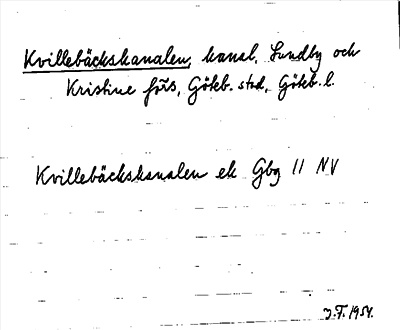 Kvillebäckskanalen, kanal, Lundby och
Kristine förs, Göteb. stad, Göteb. l.
Kvillebäckskanalen ek Gbg 11 NV
J.F. 1954.